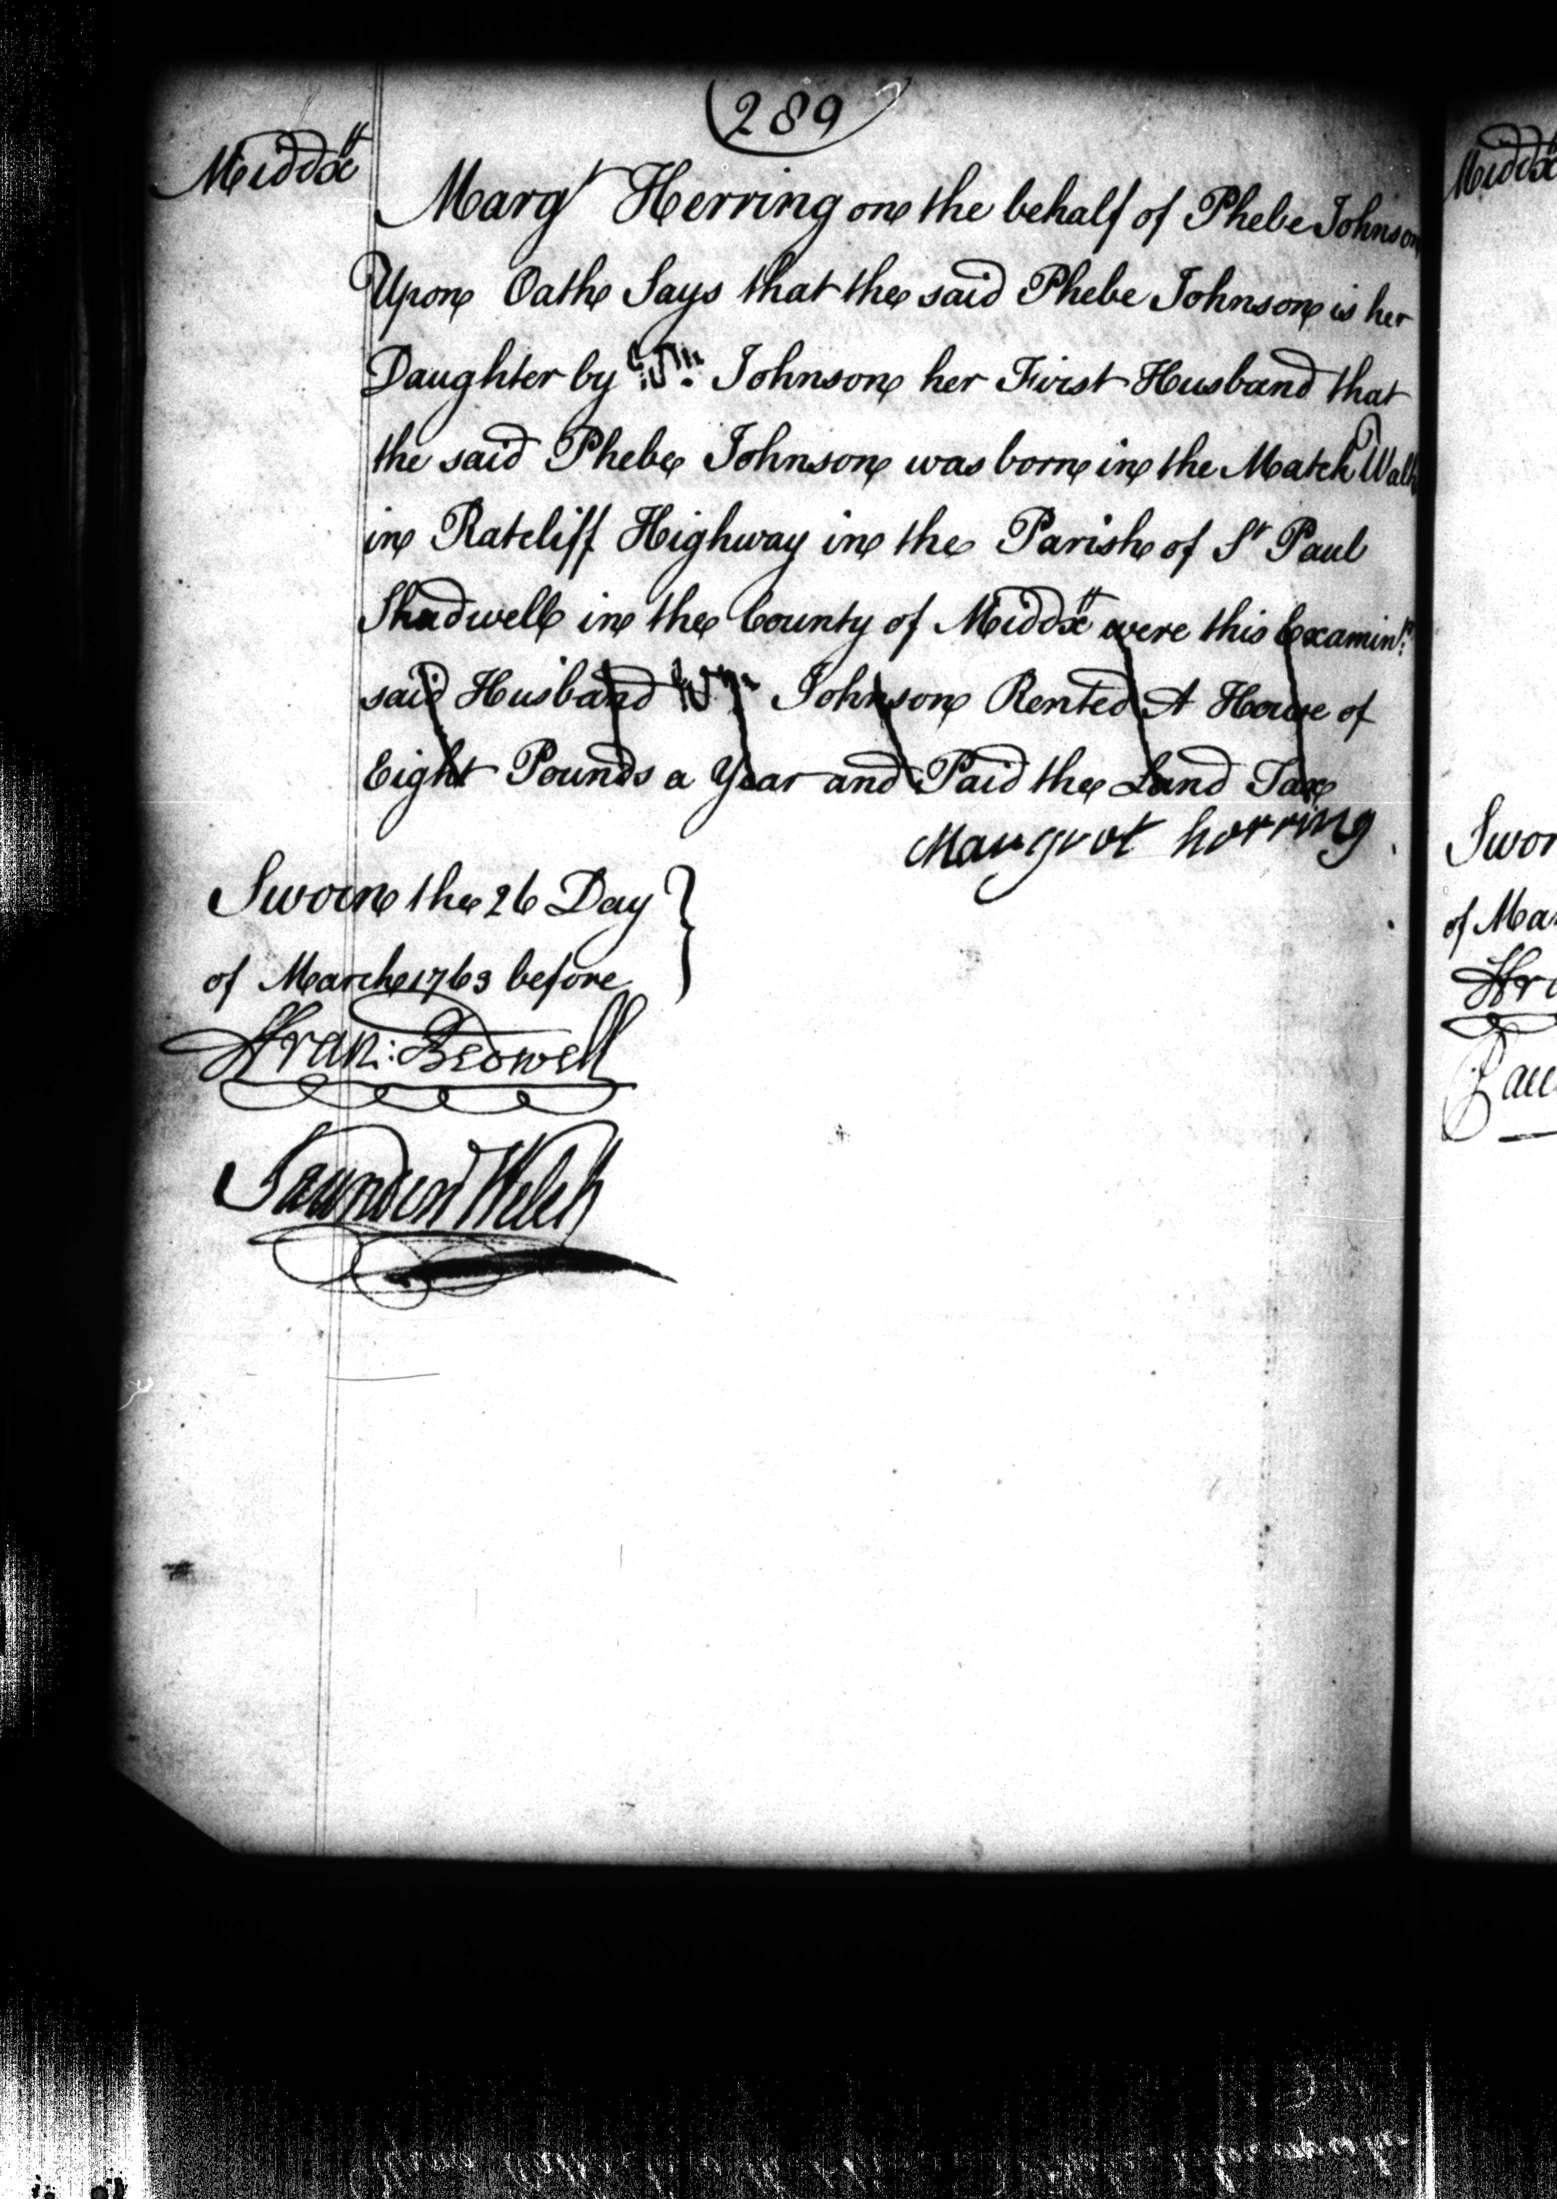 289
Middx
Margt Herring on the behalf of Phebe Johnson
Upon Oath Says that the said Phebe Johnson is her
Daughter by Wm: Johnson her First Husband that
the said Phebe Johnson was born in the Match Walk
in Ratcliff Highway in the Parish of St Paul
Shadwell in the County of Middx were this Examint:
said Husband Wm Johnson Rented A House of
Eight Pounds a Year and Paid the Land Tax
Margret herring
Sworn the 26 Day
of March 1763 before
Fran: Bedwell
Saunders Welch
Middx
Swor
of Mar
Fra
Sau